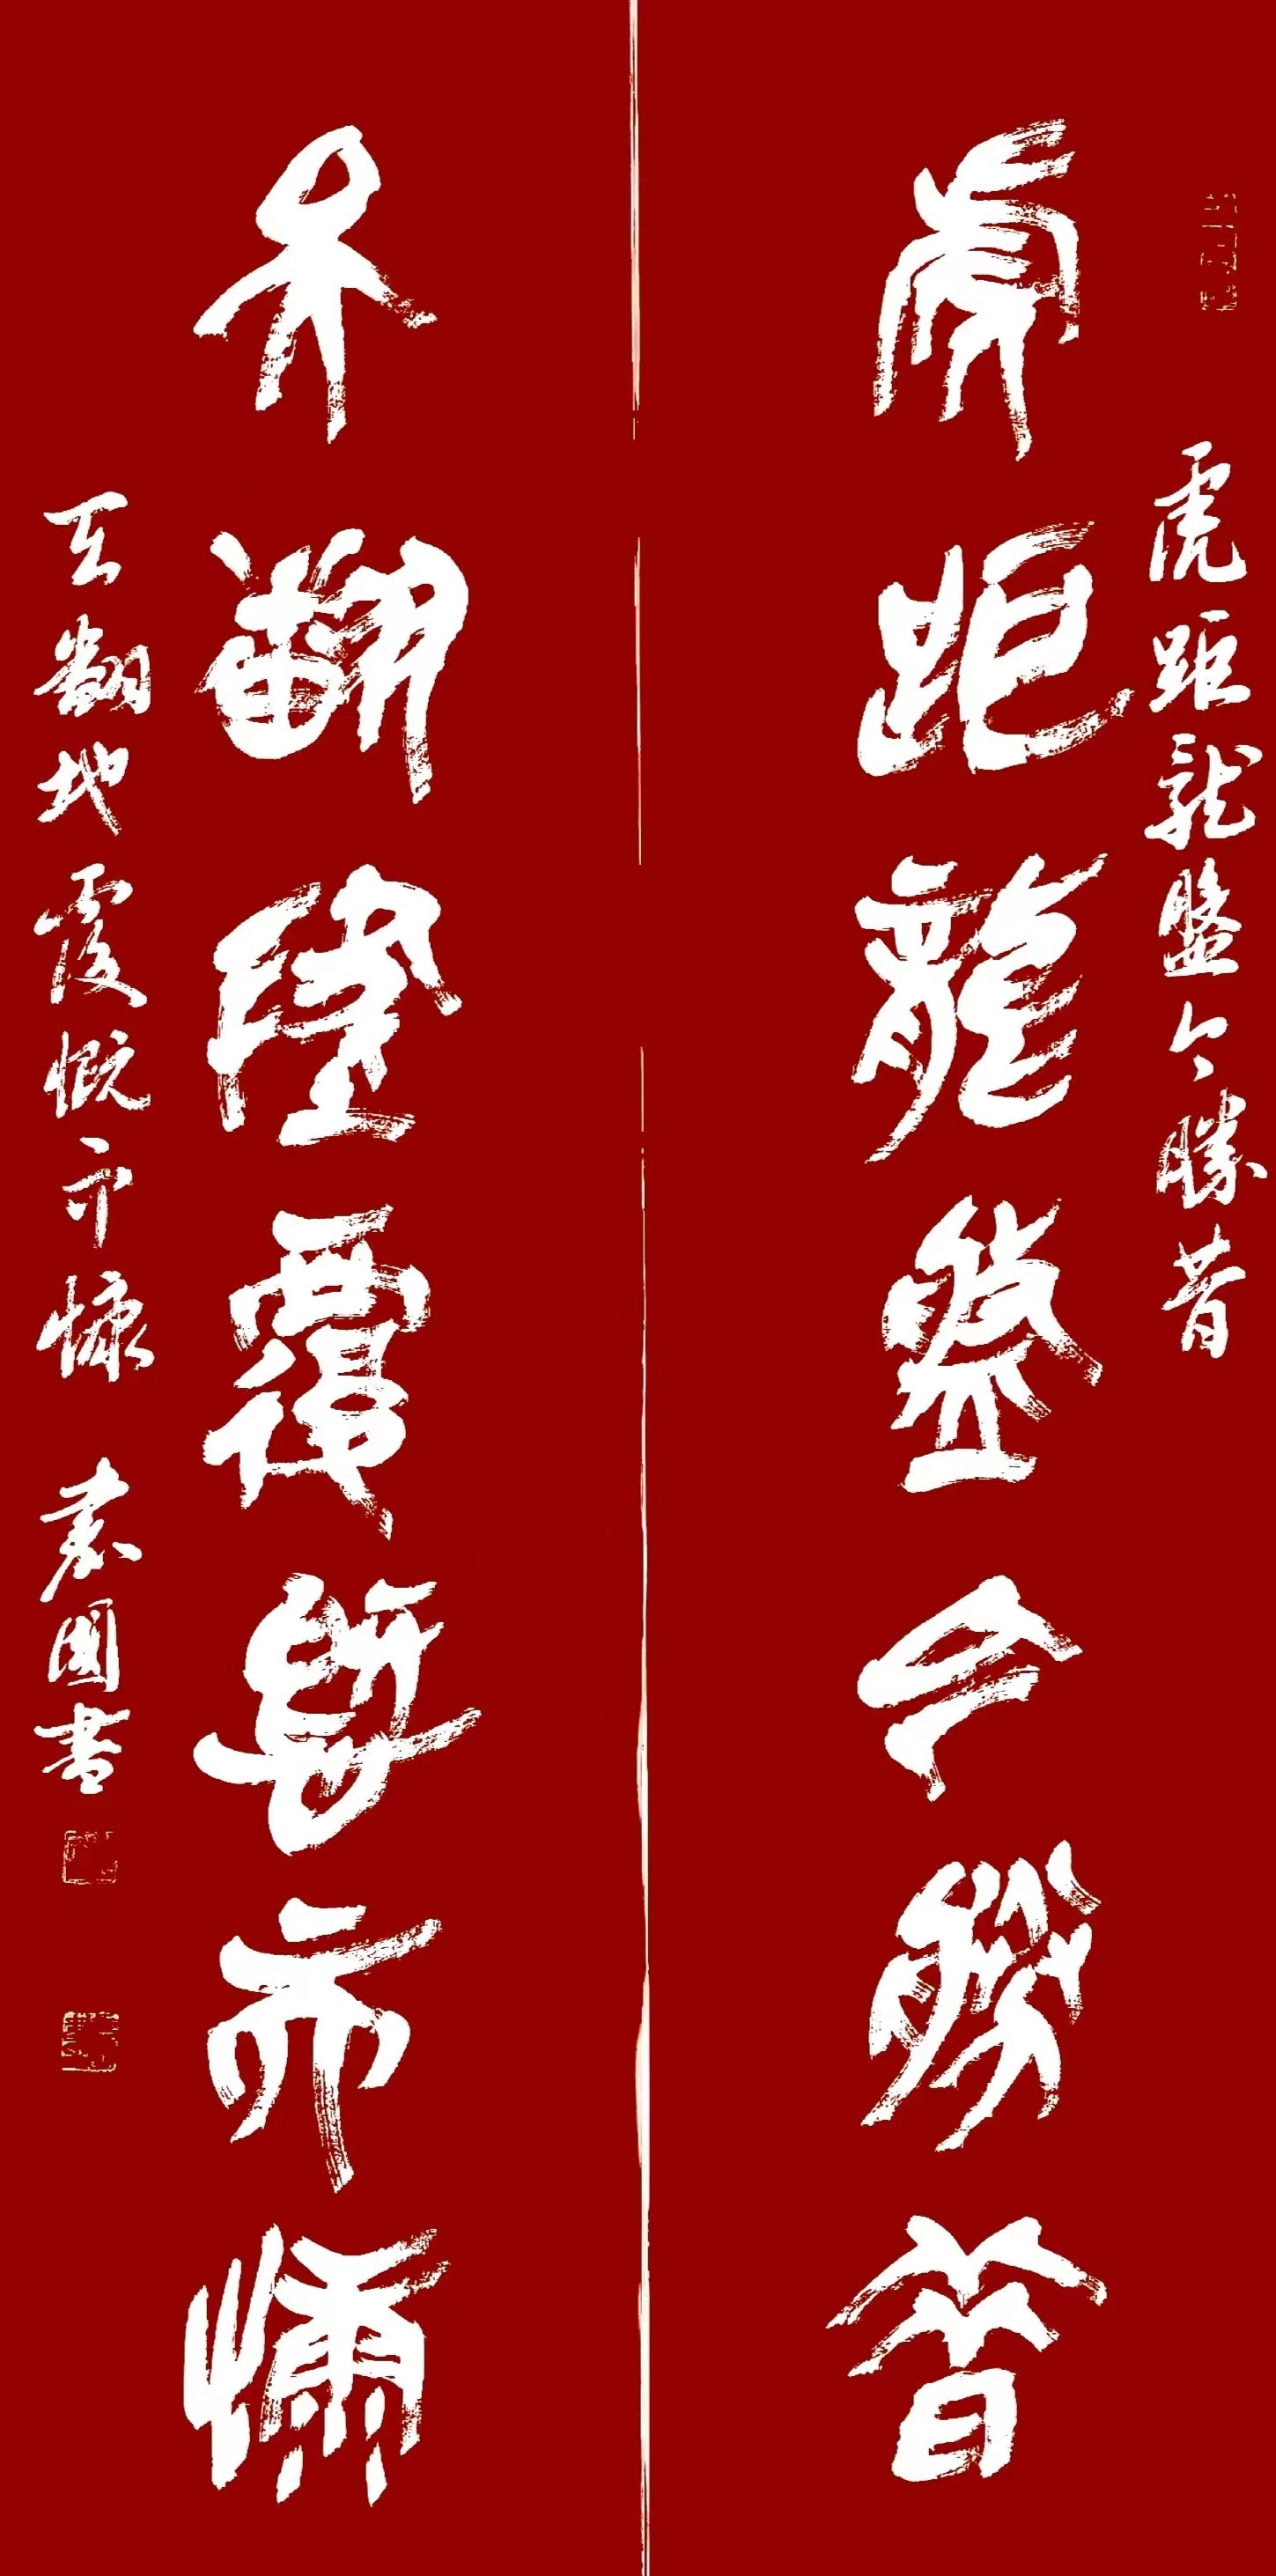 虎距龍盤今勝昔
虎距龍盤今勝昔
天翻地覆慨而慷
天翻地覆慨而慷 袁國書